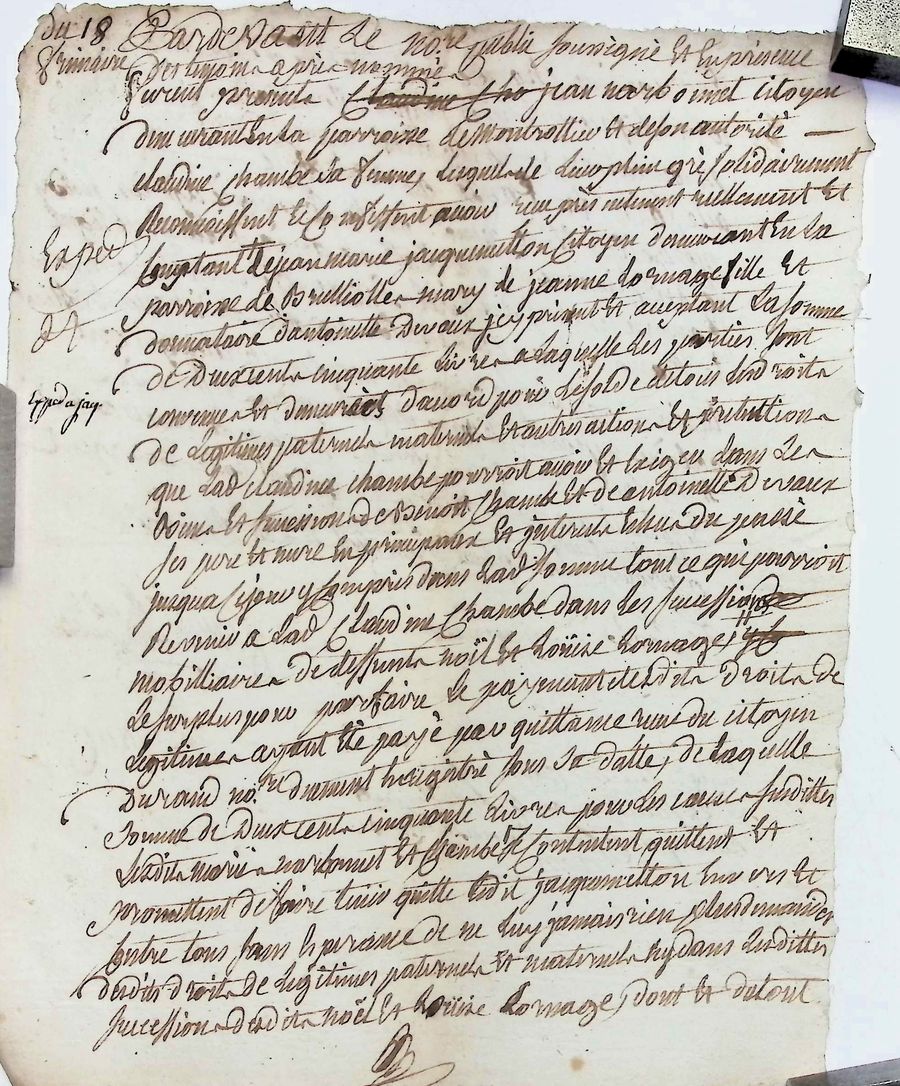 du 18
frimaire
Pardevant le no.re public soussigné et en presence
des temoins apres nommés
furent presents Claudine Cha jean narbonnet citoyen
demeurant en la parroisse de Montrottier et de son autorité
claudine chambe sa femme, lesquels de leur plein gré solidairement
Reconnoissent et Confessent avoir reçu présentement reellement et
Comptant de jean marie jacquemetton Citoyen demeurant en la
parroisse de Brulliolles mary de jeanne Lornage fille et
donnataire d'antoinette Devaux icy present et acceptant la somme
de Deux cents cinquante livres a laquelle les parties sont
convenues et demeurées d'accord pour le solde de tous les droits
de legitimes paternels maternels et autres actions et pretentions
que lad. claudine chambe pourroit avoir et exiger dans les
Biens et successions de Benoit Chambe et de antoinette Devaux
ses pere et mere en principaux et interets echus du passé
jusqua Ce jour y Compris dans lad. somme tout ce qui pourroit
Revenir a lad. Claudine Chambe dans les successions
mobilliaires de deffunts noël et Loüise Lornage
le surplus pour parfaire le payement desdits droits de
legitimes ayant été payé par quittance reçue du citoyen
Durand no.re duement enregistré sous sa datte, de laquelle
somme de Deux cents cinquante livres pour les causes susdittes
lesdits mariés narbonnet et Chambe se Contentent quittent et
promettent de faire tenir quitte ledit jacquemetton envers et
Contre tous sans esperance de ne luy jamais rien plus demander
desdits droits de legitimes paternels et maternels ny dans lesdittes
successions desdits noël et Loüise Lornage, dont et du tout
Exped
Exped a jaq.